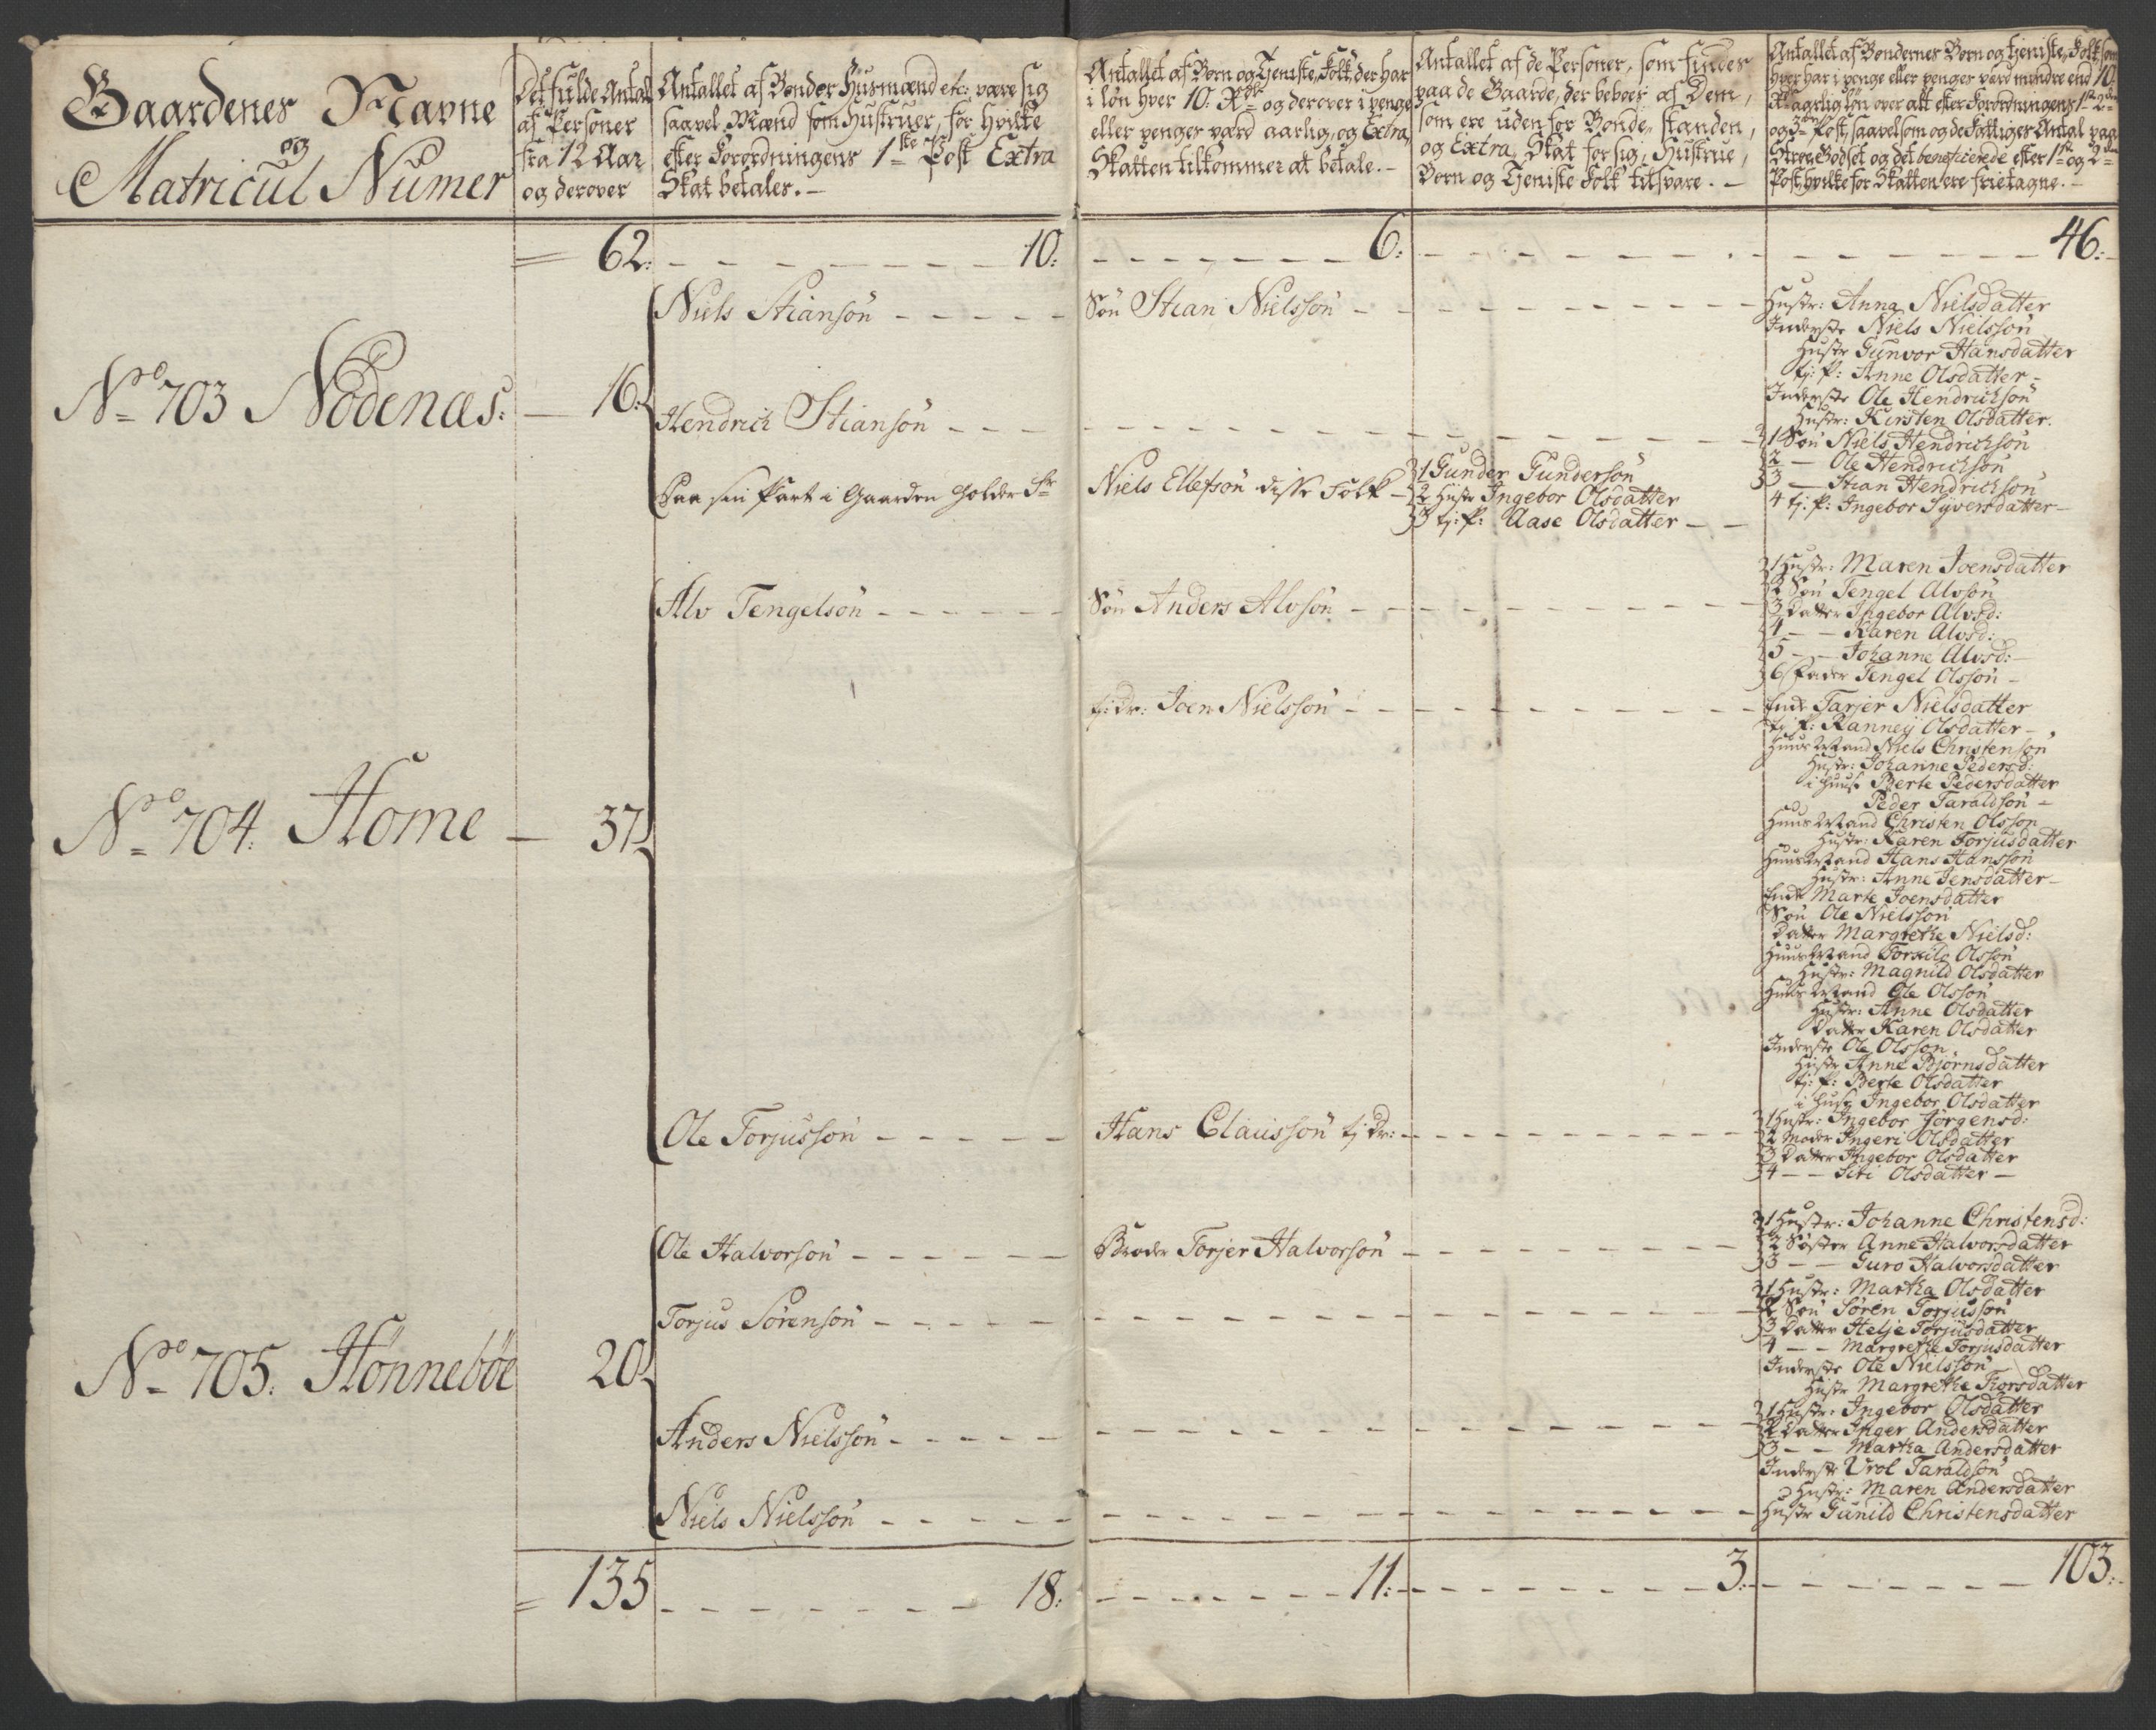 Gaardenes Navne
og
Matricul Numer
Det fulde Antal
af Personer
fra 12 Aar
og derover
Antallet af Bønder Husmænd etc: være sig
saavel Mænd som Hustruer, for hvilke
efter Forordningens 1ste Post Extra
Skat betales. –
Antallet af Børn og Tieniste-Folk, der har
i løn hver 10: Rdlr og derover i penge
eller penges værd aarlig, og Extra
Skatten tilkommer at betale. –
Antallet af de Personer, som findes
paa de Gaarde, der beboes af Dem,
som ere uden for Bonde-standen,
og Extra Skat for sig, Hustrue,
Børn og Tieniste Folk tilsvare. –
Antallet af Bøndernes Børn og tieniste-Folk som
hver har i penge eller penges værd mindre end 10
Rd aarlig løn over alt efter Forordningens 1ste 2den
og 3die Post, saavelsom og de Fattiges Antal paa
Strøe Godset og det beneficerede efter 1ste og 2den
Post, hvilke for Skatten ere frietagne. –
= 62: – 10: – 6: – 46: –
No 703 Nödenæs: – 16:
Niels Stiansön – Sön Stian Nielssön – Hustr: Anna Nielsdatter
Inderste Niels Nielssön
Hustr Gunvor Hansdatter
tj: P: Anne Olsdatter –
Inderste Ole Hendrichsön
Hustr: Kirsten Olsdatter.
Hendrich Stiansön – 1 Sön Niels Hendrichsön
2 — Ole Hendrichsön
3 — Stian Hendrichsön
4 tj: P: Ingebor Syversdatter –
Paa sin Part i Gaarden holder Sr Niels Ellefsön disse Folk – 1 Gunder Gundersön
2 Hustr Ingebor Olsdatter
3 tj: P: Aase Olsdatter – –
No 704: Home – 37
Alv Tengelsön – Sön Anders Alvsön – 1 Hustr: Maren Joensdatter
2 Sön Tengel Alvsön
3 Datter Ingebor Alvsd:
4 – – Karen Alvsd:
5 – – Johanne Alvsd: –
6 Fader Tengel Olssön –
tj: Dr: Joen Nielssön – Enke Tarjer Nielsdatter
tj: P: Ranney Olsdatter –
Huus Mand Niels Christensön
Hustr: Johanne Pedersd:
i Huus Berte Pedersdatter
Peder Taraldsön –
Huus Mand Christen Olsson
Hustr: Karen Torjusdatter
Huus Mand Hans Hanssön
Hustr: Anne Jensdatter –
Enke Marte Joensdatter
Sön Ole Nielssön
Datter Margrethe Nielsd:
Huus Mand Torkild Olssön
Hustr: Magnild Olsdatter
Huus Mand Ole Olssön
Hustr: Anne Olsdatter
Datter Karen Olsdatter
Inderste Ole Olsson
Hustr Anne Björnsdatter
tj: P: Berte Olsdatter
i Huus Ingebor Olsdatter
Ole Torjussön – Hans Claussön tj Dr: – 1 Hustr: Ingebor Jörgensd:
2 Moder Ingeri Olsdatter
3 Datter Ingebor Olsdatter
4 – – Siri Olsdatter –
No 705: Hönneböe 20
Ole Halvorsön – Broder Torjer Halvorsön – 1 Hustr: Johanne Christensd:
2 Söster Anne Halvorsdatter
3 – – Guro Halvorsdatter
Torjus Sörensön – 1 Hustr: Martha Olsdatter
2 Sön Sören Torjussön
3 Datter Helje Torjusdatter
4 – – Margrethe Torjusdatter
Inderste Ole Nielssön
Hustr Margrethe Thorsdatter
Anders Nielssön – 1 Hustr: Ingebor Olsdatter
2 Datter Inger Andersdatter
3 – – Martha Andersdatter
Inderste Urol Taraldsön
Hustr: Maren Andersdatter
Niels Nielssön – Hustr Gunild Christensdatter
= 135 – 18: – 11: – 3: – 103: –